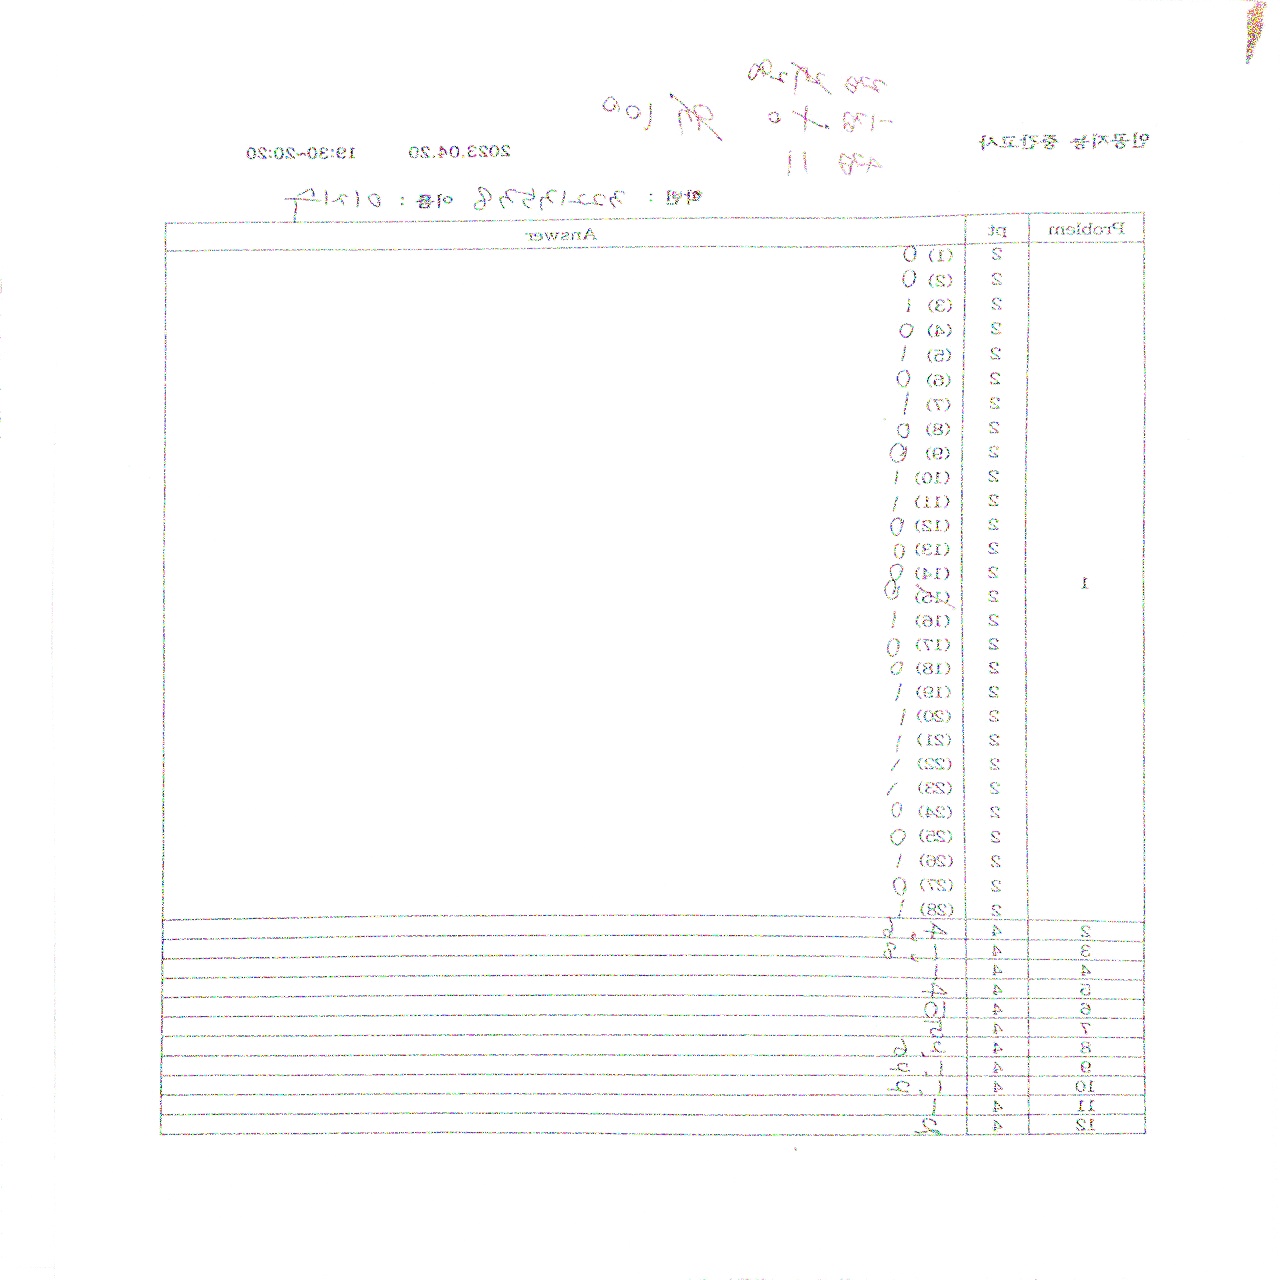 인공지능 중간고사 2023.04.20 19:30-20:20
학번 : 이름 :
Problem pt Answer
1 2 (1) 0
2 (2) 0
2 (3) 1
2 (4) 0
2 (5) 1
2 (6) 0
2 (7) 1
2 (8) 0
2 (9) 0
2 (10) 1
2 (11) 1
2 (12) 0
2 (13) 0
2 (14) 0
2 (15)
2 (16) 1
2 (17) 0
2 (18) 0
2 (19) 1
2 (20) 1
2 (21) 1
2 (22) 1
2 (23) 1
2 (24) 0
2 (25) 0
2 (26) 1
2 (27) 0
2 (28) 1
2 4 4, 5
3 4 1, 8
4 4 1
5 4 4
6 4 5
7 4 5
8 4 2, 6
9 4 1, 4
10 4 1, 9
11 4 1
12 4